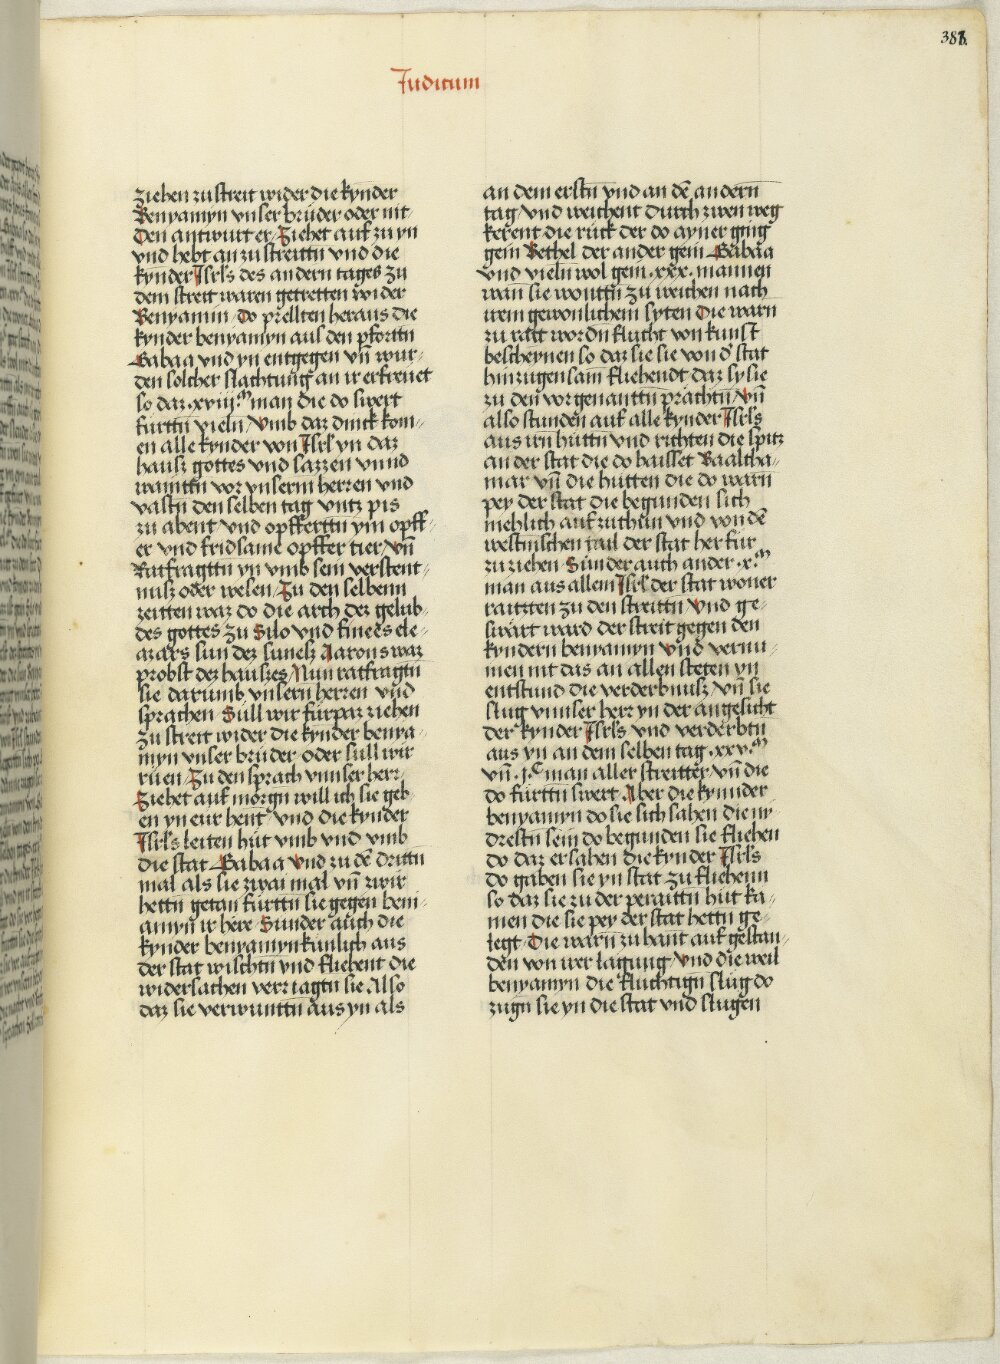 381
Judicum
ziehen zu streit wider die kynder
Benyamyn vnser brüder oder nit
Den antwurt er / Ziehet auf zu yn
vnd hebt an zu streittn vnd die
kynder Isrls des andern tages zu
dem streit waren getretten wider
Benyamin / Do prellten heraus die
kynder benyamyn aus den pforttn
Gabaa vnd yn entgegen vn̄ wur-
den solcher slachtung an ir erfrenet
so daz .xviij.m man die do swert
fürttn vieln / Vmb daz dinck kom-
en alle kynder von Isrl yn daz
hausz gottes vnd sazzen vnnd
waintn vor vnserm herren vnd
vastn den selben tag vntz pis
zu abent vnd opfferttn ym opff-
er vnd fridsame opffer tier / vn̄
Ratfragttn yn vmb sein verstent-
nusz oder wesen / Zu den selbenn
zeitten waz do die arch dez gelub-
des gottes zu Silo vnd finees ele-
azars sun dez sunelz Aarons waz
probst dez hauszes / Nun ratfragtn
sie darumb vnsern herren vnd
sprachen Süll wir fürpaz ziehen
zu streit wider die kynder benya-
myn vnser brüder oder süll wir
rüen / Zu den sprach vnnser herr
Ziehet auf morgn will ich sie geb-
en yn eur hent vnd die kynder
Isrls leiten hüt vmb vnd vmb
die stat Gabaa Vnd zu dē drittn
mal als sie zwai mal vn̄ zwir
hettn getan fürttn sie gegen beni-
amyn ir here Sunder auch die
kynder benyamyn künlich aus
der stat wischtn vnd fliehent die
widersachen verziagtn sie Also
daz sie verwunttn aus yn als
an dem erstn vnd an dē andern
tag / vnd weichent durch zwen weg
kerent die rück der do ayner ging
gein Bethel der ander gein Gabaa
vnd vieln wol gein .xxx. mannen
wan sie wonttn zu weichen nach
irem gewonlichem syten Die warn
zu ratt wordn flucht von kunst
bescheynen so daz sie sie von d' stat
hinzugen sam fliehendt daz sy sie
zu den vorgenanttn prachtn / Vn̄
also stunden auf alle kynder Isrls
aus irn hüttn vnd richten die spitz
an der stat die do haisset Baaltha-
mar vn̄ die hütten die do warn
pey der stat die begunden sich
mehlich auf zuthün vnd von dē
westnischen tail der stat herfür
zu ziehen Sunder auch ander .x.m
man aus allem Isrl der stat woner
raitzten zu den streittn Vnd ge-
swärt ward der streit gegen den
kyndern benyamyn vnd vernu-
men nit das an allen steten yn
entstund die verderbnusz / Vn̄ sie
slug vnnser herr yn der angesicht
der kynder Isrls vnd verderbtn
aus yn an dem selben tag .xxv.m
vn̄ .j.c man aller streitter vn̄ die
do fürttn swert Aber die kynnder
benyamyn do sie sich sahen die ny-
drestn sein do begunden sie fliehen
do daz ersahen die kynder Isrls
do gaben sie yn stat zu fliehenn
so daz sie zu der peraittn hüt ka-
men die sie pey der stat hettn ge-
legt Die warn zu hant auf gestan-
den von wer lagung Vnd die weil
benyamyn die fluchtign slug do
zugn sie yn die stat vnd slugen